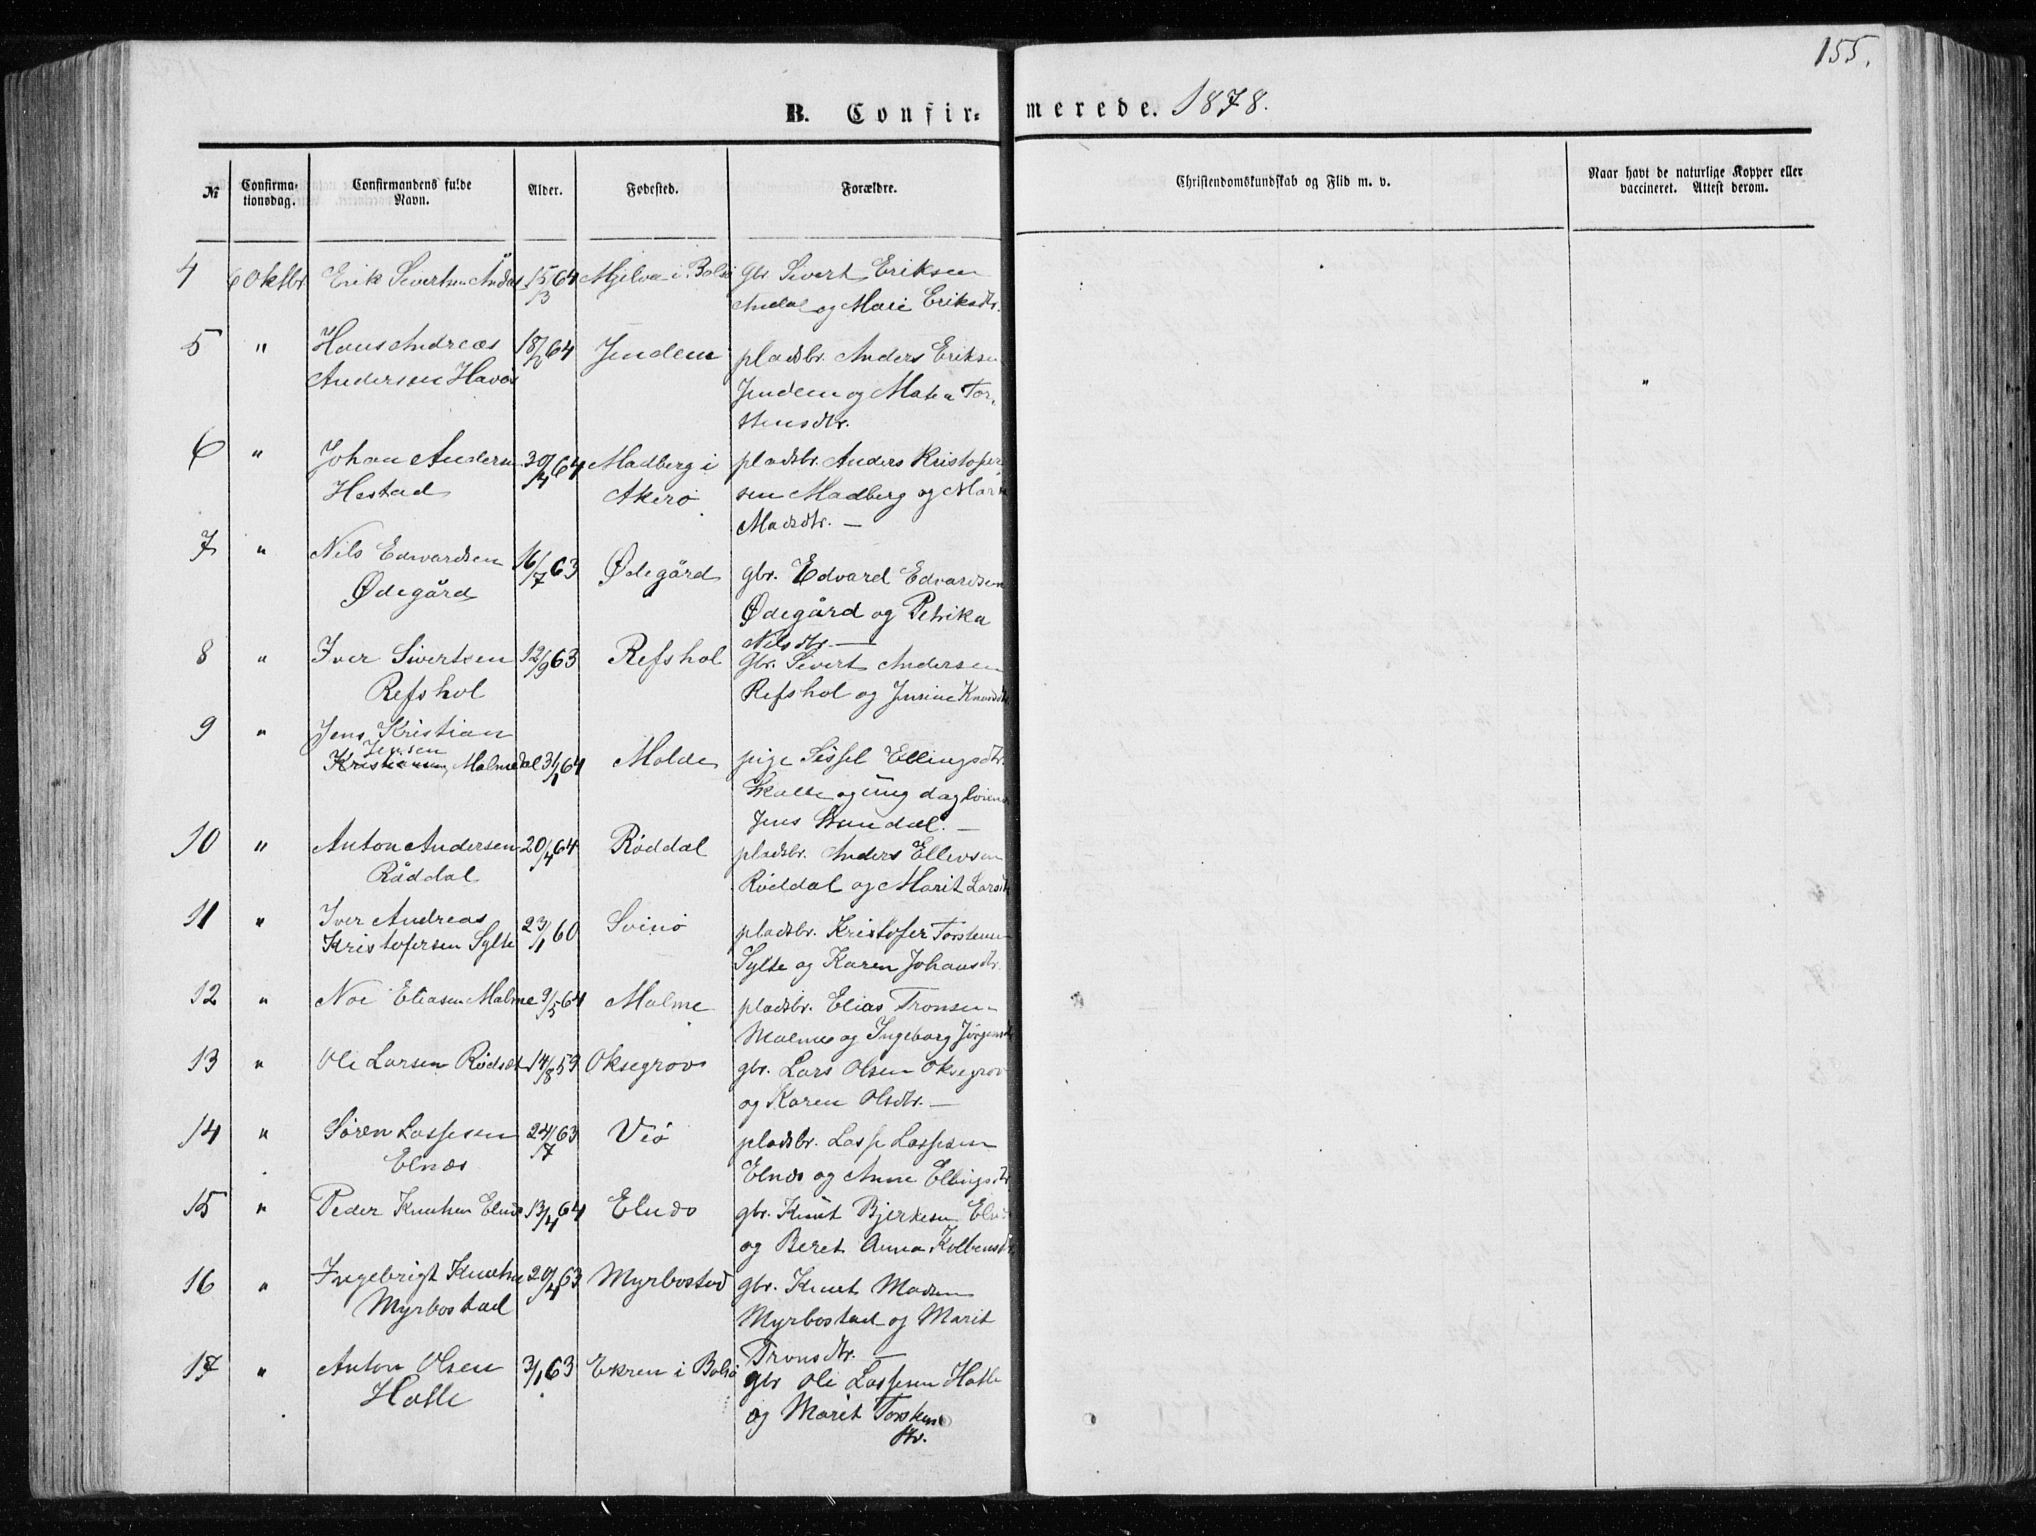 155.
B. Confirmerede. 1878.
№
Confirmationsdag.
Confirmandens fulde Navn.
Alder.
Fødested.
Forældre.
Christendomskundskab og Flid m. v.
Naar havt de naturlige Kopper eller vaccineret. Attest derom.
4 6 Oktbr. Erik Sivertsen 15/3 64 Mjelva i Bolsø gbr. Sivert Eriksen
Andal og Mari Eriksdtr.
5 " Hans Andreas 18/ 64 Jendem pladsbr. Anders Eriksen
Andersen
Jendem og Mate Tor-
stensdtr.
6 " Johan Andersen 30/4 64 Madberg i pladsbr. Anders Kristofer
Hestad Akerø sen Madberg og
Madsdtr. —
7 " Nils Edvardsen 16/7 63 Ødegård gbr. Edvard Edvardsen
Ødegård
Ødegård og Petrika
Nilsdtr. —
8 " Iver Sivertsen 12/9 63 Refshol gbr. Sivert Andersen
Refshol Refshol og Knudsdtr
9 " Jens Kristian
Jensen
Malmedal 31/1 64 Molde pige Sissel Ellingsdtr.
og ung
Jens
10 " Anton Andersen 20/4 64 Røddal pladsbr. Anders Ellevsen
Råddal Røddal og Marit Larsdtr
11 " Iver Andreas 23/1 60 Svinø pladsbr. Kristofer Torstensen
Kristofersen Sylte
Sylte og Karen Johansdtr.
12 " Noe Eliasen Malme 9/5 64 Malme pladsbr. Elias Tronsen
Malme og Ingeborg Jørgensdtr
13 " Ole Larsen Rødset 14/8 59 Oksegrov gbr. Lars Olsen Oksegrov
og Karen Olsdtr. —
14 " Søren Lassesen 24/7 63 Veø pladsbr. Lasse Lassesen
Elnæs Elnæs og Anne Ellingsdtr.
15 " Peder Knutsen Elnæs 13/4 64 Elnæs gbr. Knut Bjerkesen
og Beret Anna Kolbensdtr.
16 " Ingebrigt Knutsen 20/4 63 Myrbostad gbr. Knut Madsen
Myrbostad Myrbostad og Marit
Tronsdtr. —
17 " Anton Olsen 3/1 63 Ekren i Bolsø gbr Ole Lassesen Hatle
Hatle
og Marit Torstens
dtr.